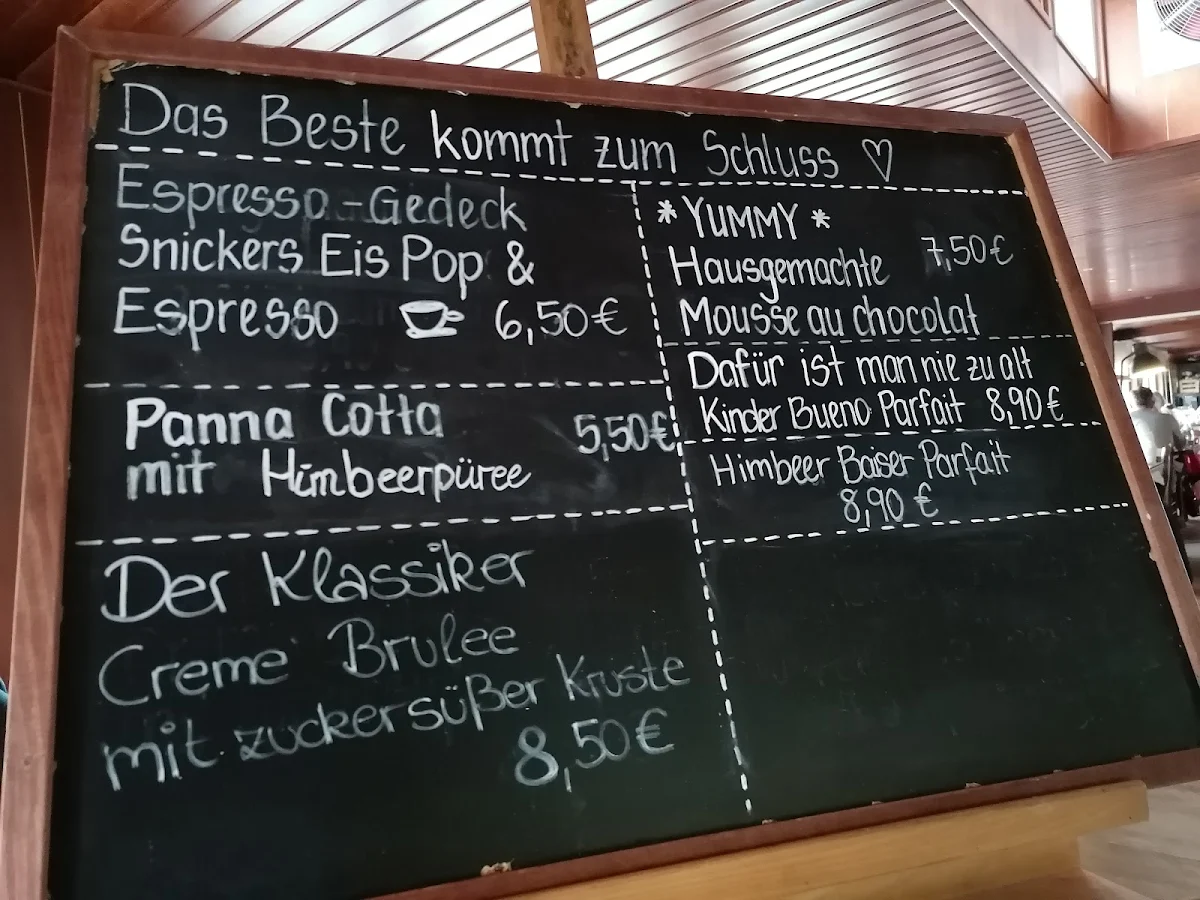 Das Beste kommt zum Schluss ♡
Espresso-Gedeck
Snickers Eis Pop &
Espresso 6,50€
Panna Cotta 5,50€
mit Himbeerpüree
Der Klassiker
Creme Brulee
mit zuckersüßer Kruste
8,50€
*YUMMY*
Hausgemachte 7,50€
Mousse au chocolat
Dafür ist man nie zu alt
Kinder Bueno Parfait 8,90€
Himbeer Baiser Parfait
8,90 €